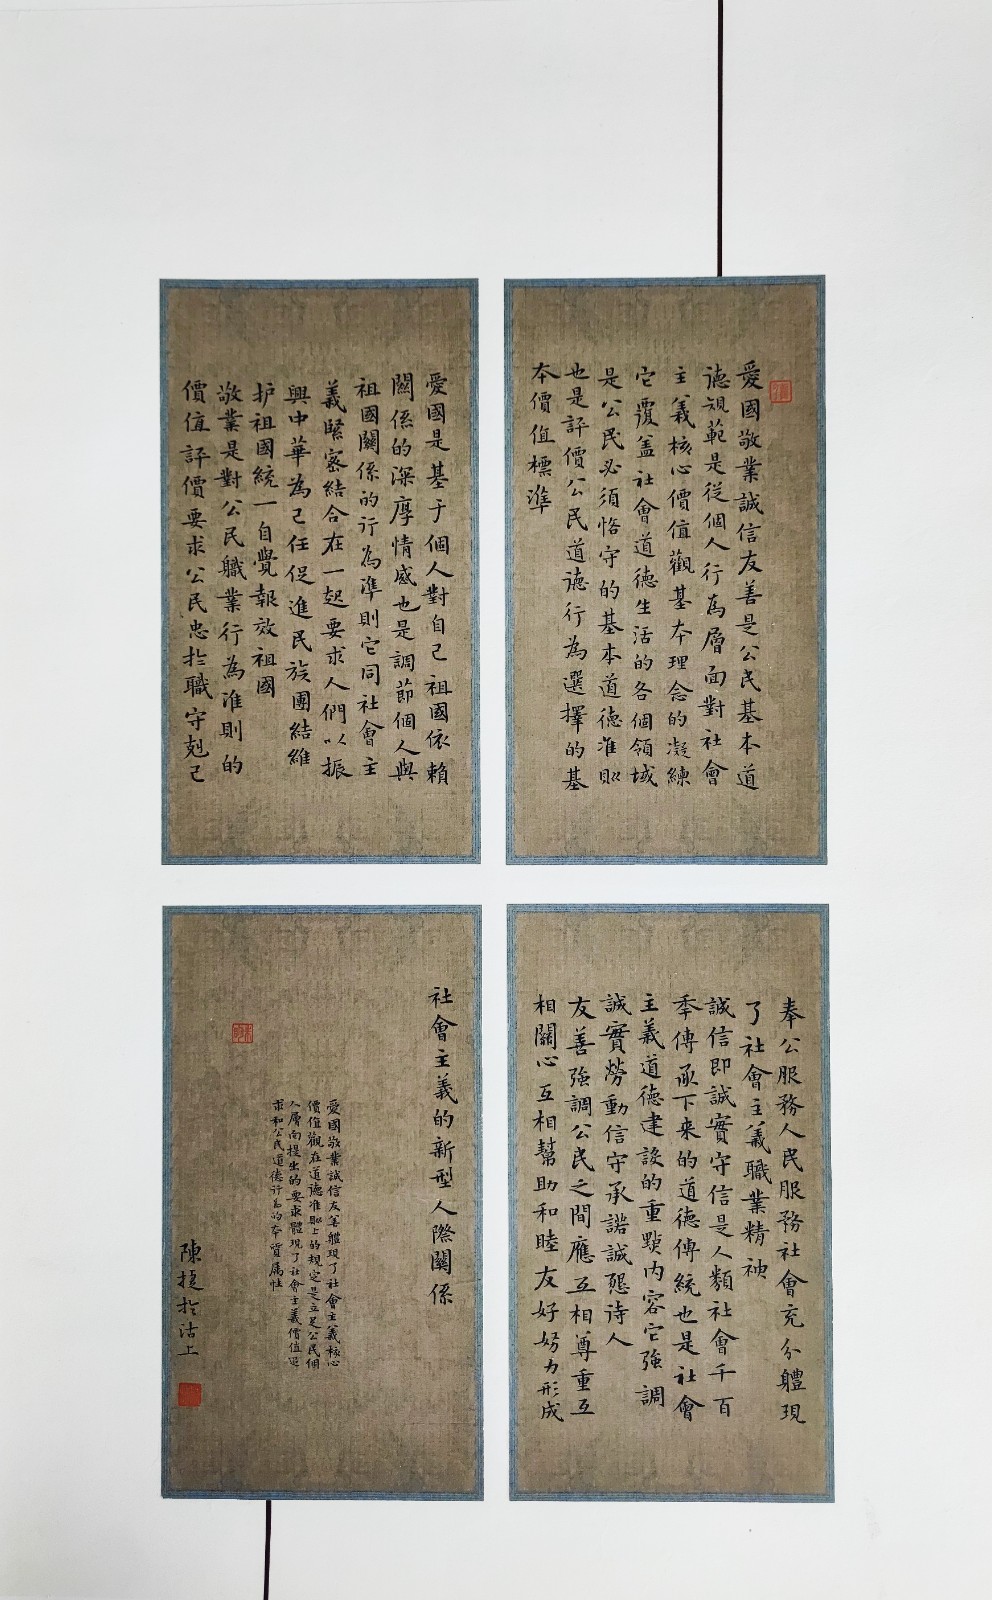 愛國敬業誠信友善是公民基本道
德規範是從個人行為層面對社會
主義核心價值觀基本理念的凝練
它覆盖社會道德生活的各個領域
是公民必須恪守的基本道德准則
也是評價公民道德行為選擇的基
本價值標準
愛國是基于個人對自己祖國依賴
關係的深厚情感也是調節個人與
祖國關係的行為準則它同社會主
義緊密結合在一起要求人們以振
興中華為己任促進民族團結維
护祖國統一自覺報效祖國
敬業是對公民職業行為准則的
價值評價要求公民忠於職守剋己
奉公服務人民服務社會充分體現
了社會主義職業精神
誠信即誠實守信是人類社會千百
年傳承下来的道德傳統也是社會
主義道德建設的重點内容它強調
誠實勞動信守承諾誠懇待人
友善強調公民之間應互相尊重互
相關心互相幫助和睦友好努力形成
社會主義的新型人際關係
愛國敬業誠信友善體現了社會主義核心
價值觀在道德准則上的規定是立足公民個
人層面提出的要求體現了社會主義價值追
求和公民道德行為的本質属性
陳捷於沽上